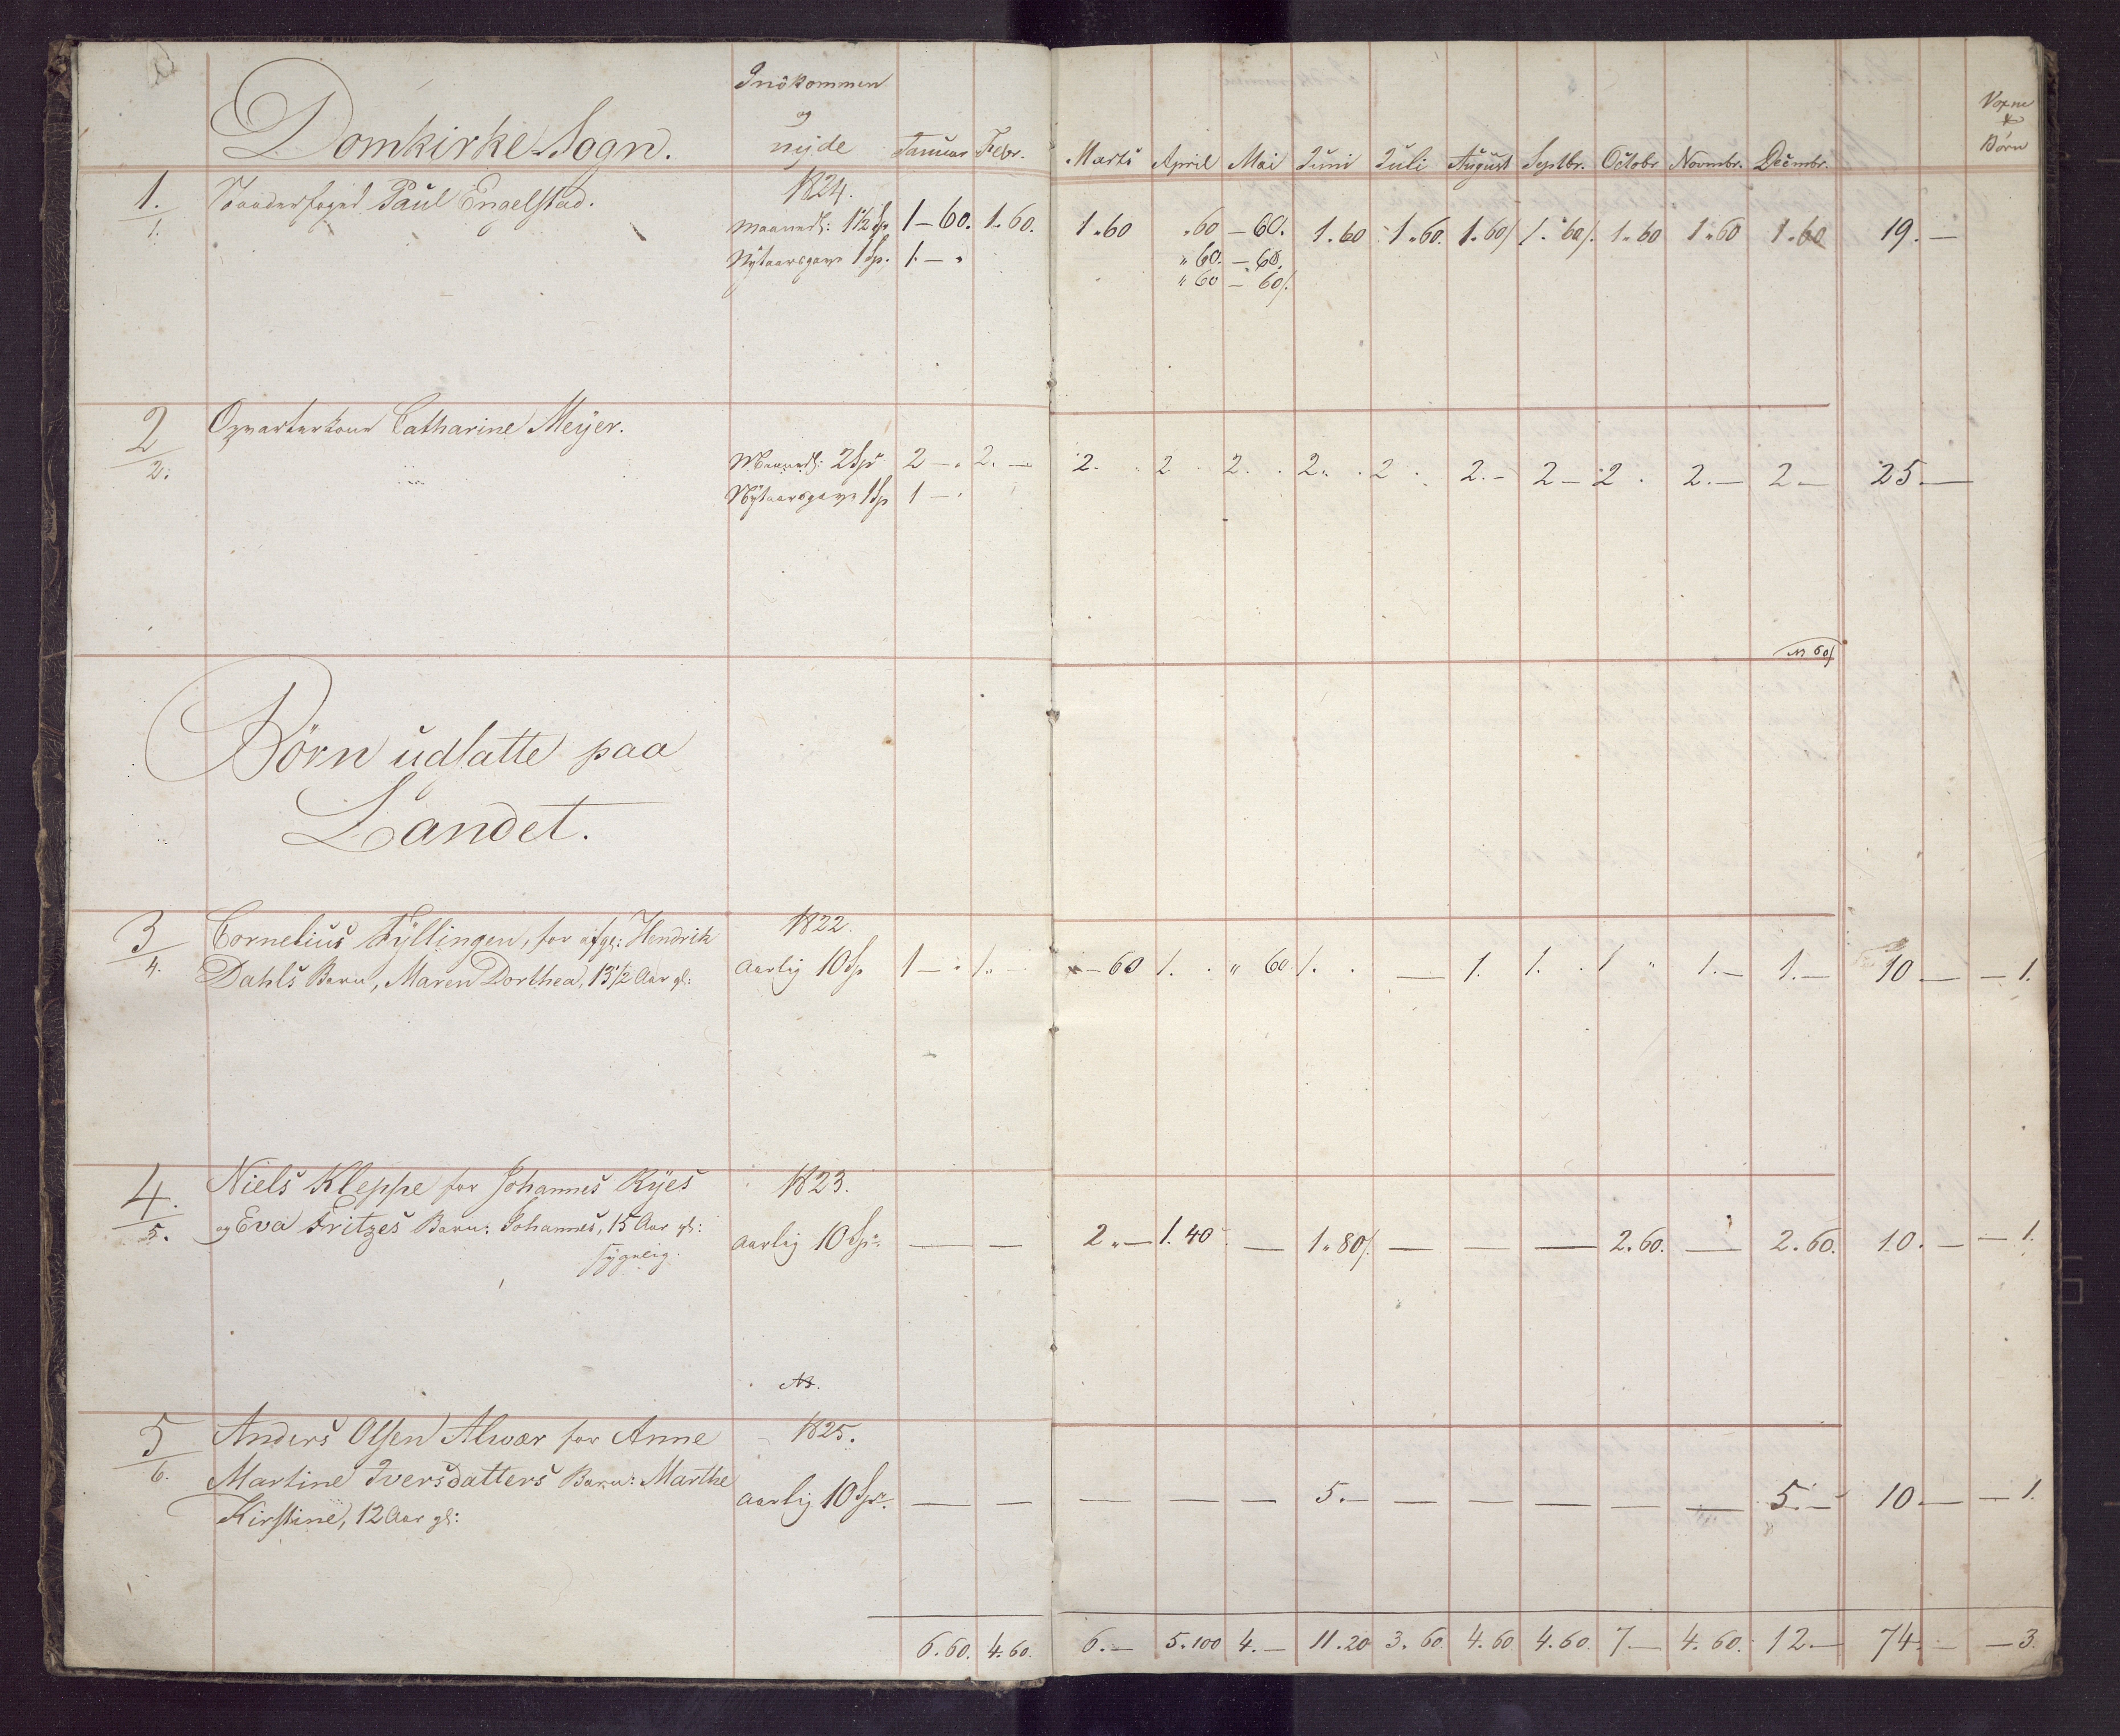 Domkirke-Sogn.
Indkommen
og
nyde
Januar Febr. Marts April Mai Juni Juli August Septbr. Octobr Novmbr. Decmbr.
Voxne
&
Børn
1. Paul Engelstad. 1824.
1. Maanedl: 1½ Sp 1-60. 1.60. 1.60 .60 -60. 1.60 1.60. 1.60/ 1.60/. 1.60 1.60 1.60 19.-
Nytaarsgave 1 Sp. 1.- " "60. -60.
"60 -60/.
2 Catharine Meyer.
2. Maanedl: 2 Sp 2 -. 2.- 2. 2 2. 2. 2. 2.- 2- 2. 2.- 2- 25.-
Nytaarsgave 1 Sp 1 -.
Børn udsatte paa
Landet.
3 Cornelius Fyllingen, for afg: Hendrik 1822.
4. Dahls Barn, Maren Dorthea, 13½ Aar gl: Aarlig 10 Sp 1-. 1.- -60 1. " 60. 1. - 1. 1. 1 " 1.- 1.- 10- -1.
4. Niels Kleppe for Johannes Ryes 1823.
5. og Eva Fritzes Barn: Johannes, 15 Aar gl: Aarlig 10 Sp. - - 2"- 1.40 - 1.80/. - - - 2.60. - 2.60. 10.- -1.
sygelig.
5 Anders Olsen Alvær for Anne 1825.
6. Martine Iversdatters Barn: Marthe Aarlig 10 Sp. - - - - - 5.- - - - - - 5.- 10- -1.
Kirstine, 12 Aar gl:
6.60. 4.60. 6.- 5.100 4.- 11.20 3.60 4.60 4.60. 7- 4.60. 12.- 74.- -3.